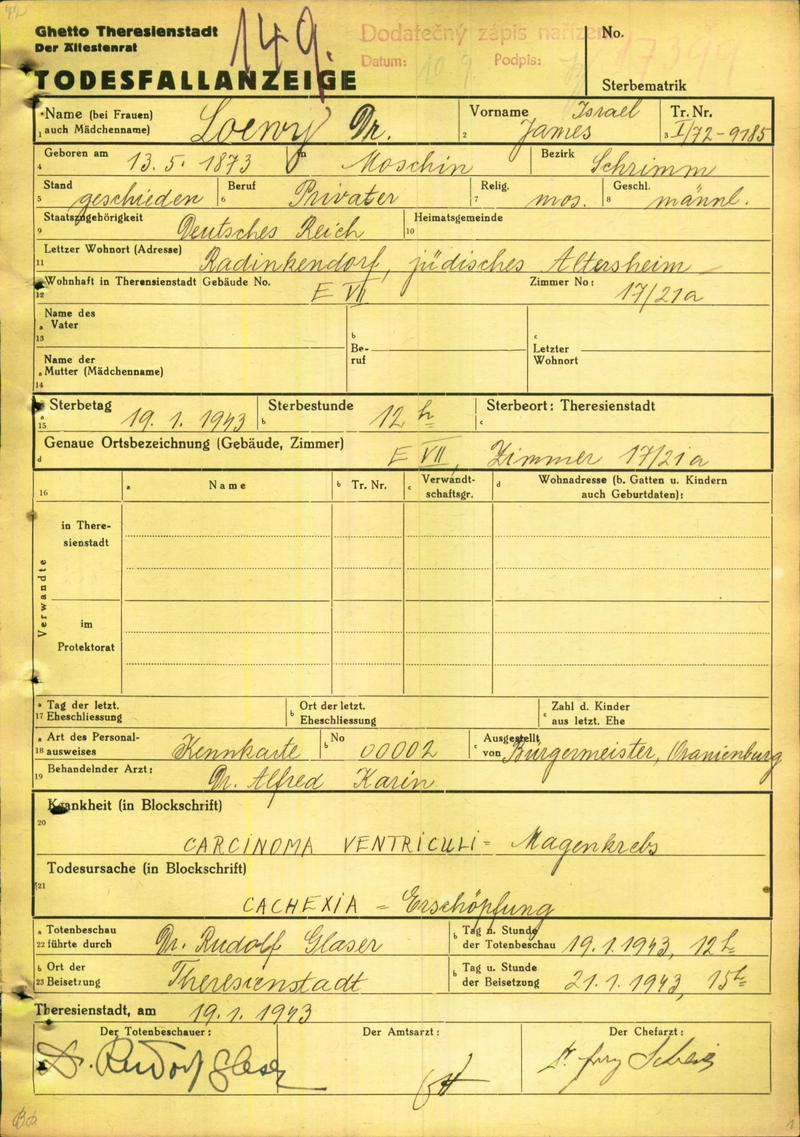 Ghetto Theresienstadt
Der Ältestenrat
149.
Dodatečný zápis nařízen
Datum: 10 9. Podpis:
No. 17399
TODESFALLANZEIGE
Sterbematrik
1 a Name (bei Frauen) auch Mädchenname) Loewy Dr.
2 Vorname Israel James
3 Tr. Nr. I/72-9185
4 Geboren am 13.5.1873 in Moschin Bezirk Schrimm
5 Stand geschieden 6 Beruf Privater 7 Relig. mos. 8 Geschl. männl.
9 Staatszugehörigkeit Deutsches Reich 10 Heimatsgemeinde
11 Lettzer Wohnort (Adresse) Radinkendorf, jüdisches Altersheim
12 Wohnhaft in Therensienstadt Gebäude No. E VII Zimmer No: 17/21a
13 a Name des Vater
14 a Name der Mutter (Mädchenname)
b Beruf
c Letzter Wohnort
15 a Sterbetag 19.1.1943 b Sterbestunde 12 h c Sterbeort: Theresienstadt
d Genaue Ortsbezeichnung (Gebäude, Zimmer) E VII, Zimmer 17/21a
16 a Name b Tr. Nr. c Verwandtschaftsgr. d Wohnadresse (b. Gatten u. Kindern auch Geburtdaten):
Verwandte
in Theresienstadt
im Protektorat
17 a Tag der letzt. Eheschliessung b Ort der letzt. Eheschliessung c Zahl d. Kinder aus letzt. Ehe
18 a Art des Personalausweises Kennkarte b No 00002 c Ausgestellt von Bürgermeister, Oranienburg
19 Behandelnder Arzt: Dr. Alfred Karin
20 Krankheit (in Blockschrift)
CARCINOMA VENTRICULI = Magenkrebs
21 Todesursache (in Blockschrift)
CACHEXIA = Erschöpfung
22 a Totenbeschau führte durch Dr. Rudolf Glaser b Tag u. Stunde der Totenbeschau 19.1.1943, 12h
23 b Ort der Beisetzung Theresienstadt b Tag u. Stunde der Beisetzung 21.1.1943, 15h
Theresienstadt, am 19.1.1943
Der Totenbeschauer: Der Amtsarzt: Der Chefarzt:
Dr. Rudolf Glaser
1